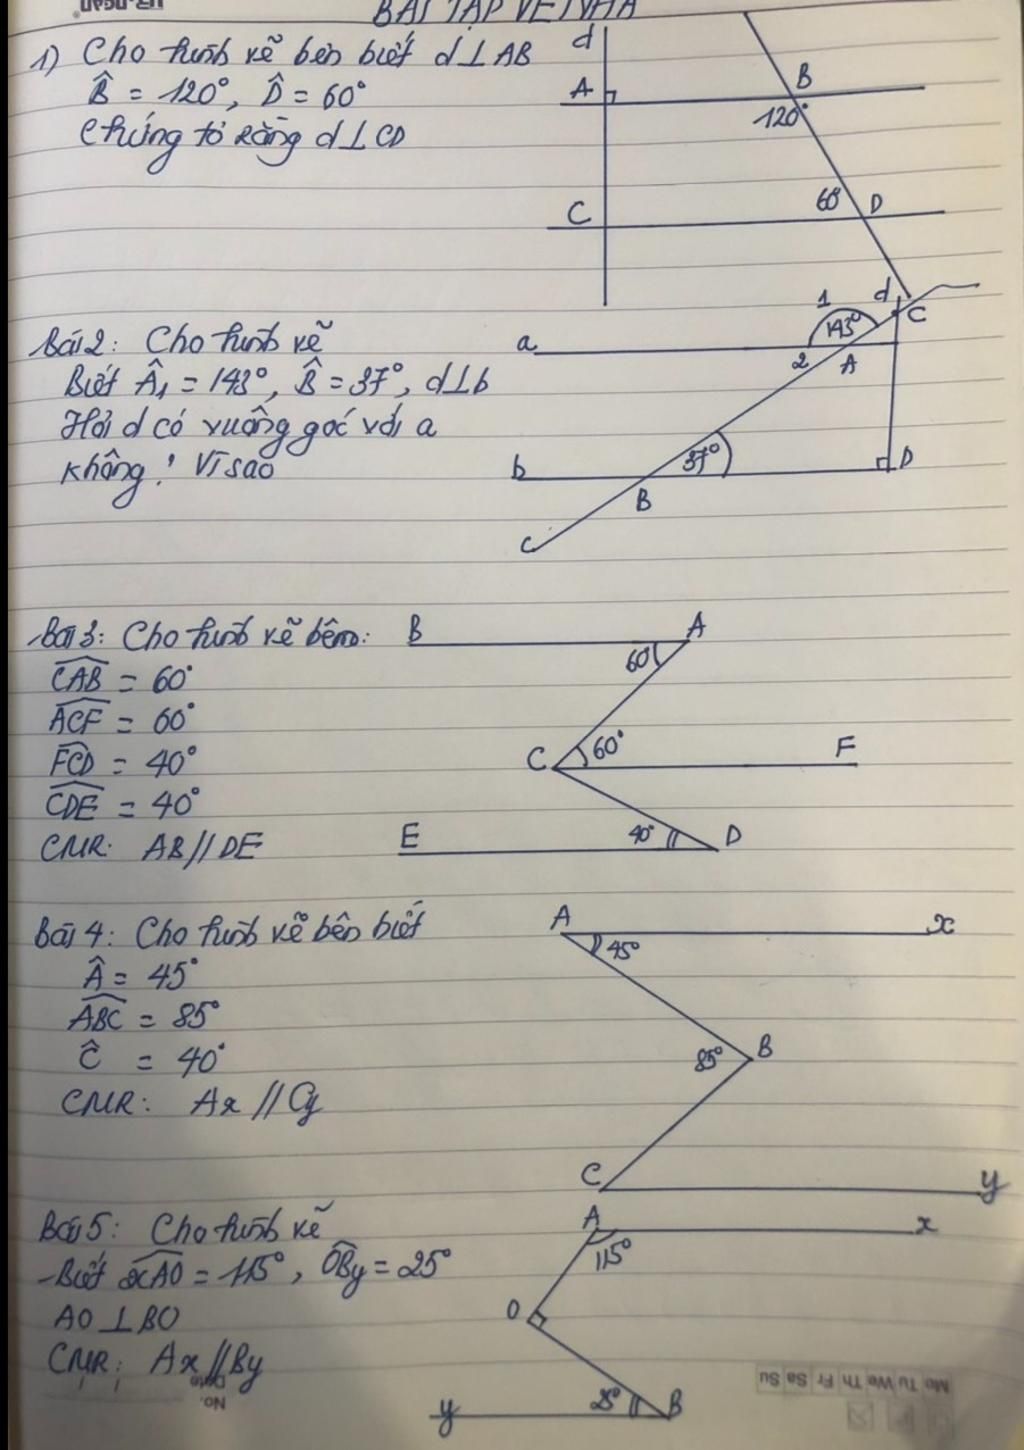 BÀI TẬP VỀ NHÀ
1) Cho hình vẽ bên biết d⊥AB
B̂ = 120°, D̂ = 60°
Chứng tỏ rằng d⊥CD
d
A
B
120°
C
60°
D
Bài 2: Cho hình vẽ
Biết Â₁ = 143°, B̂ = 37°, d⊥b
Hỏi d có vuông góc với a
không? Vì sao
1
d
C
143°
a
2
A
b
37°
D
B
c
Bài 3: Cho hình vẽ bên:
CAB̂ = 60°
ACF̂ = 60°
FCD̂ = 40°
CDÊ = 40°
CMR: AB//DE
B
A
60
C
60°
F
E
40°
D
Bài 4: Cho hình vẽ bên biết
Â = 45°
ABĈ = 85°
Ĉ = 40°
CMR: Ax // Cy
A
x
45°
85°
B
C
y
Bài 5: Cho hình vẽ
Biết xAÔ = 115°, OBŷ = 25°
AO ⊥ BO
CMR: Ax // By
A
x
115°
O
y
25°
B
No.
Date
Mo Tu We Th Fr Sa Su